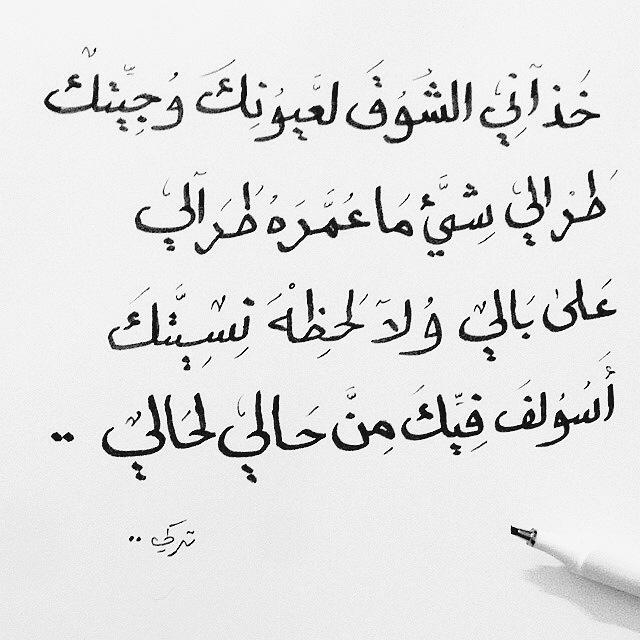 خَذآنِي الشَوُقَ لعَيوُنِكَ وُجِيّتكْ
طَرْالي شِيَّئ مَا عُمَّرَهُ طَرَآلي
عَلىٰ بَالي وُلآ لَحْظِهْ نِسِيّتكَ
أَسُوُلفَ فِيّكَ مِنَّ حَالي لحَالي ..
تركي ..